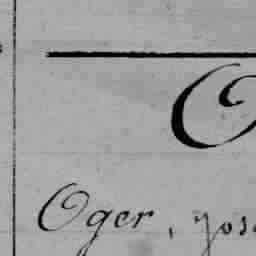 O
Oger, Jos